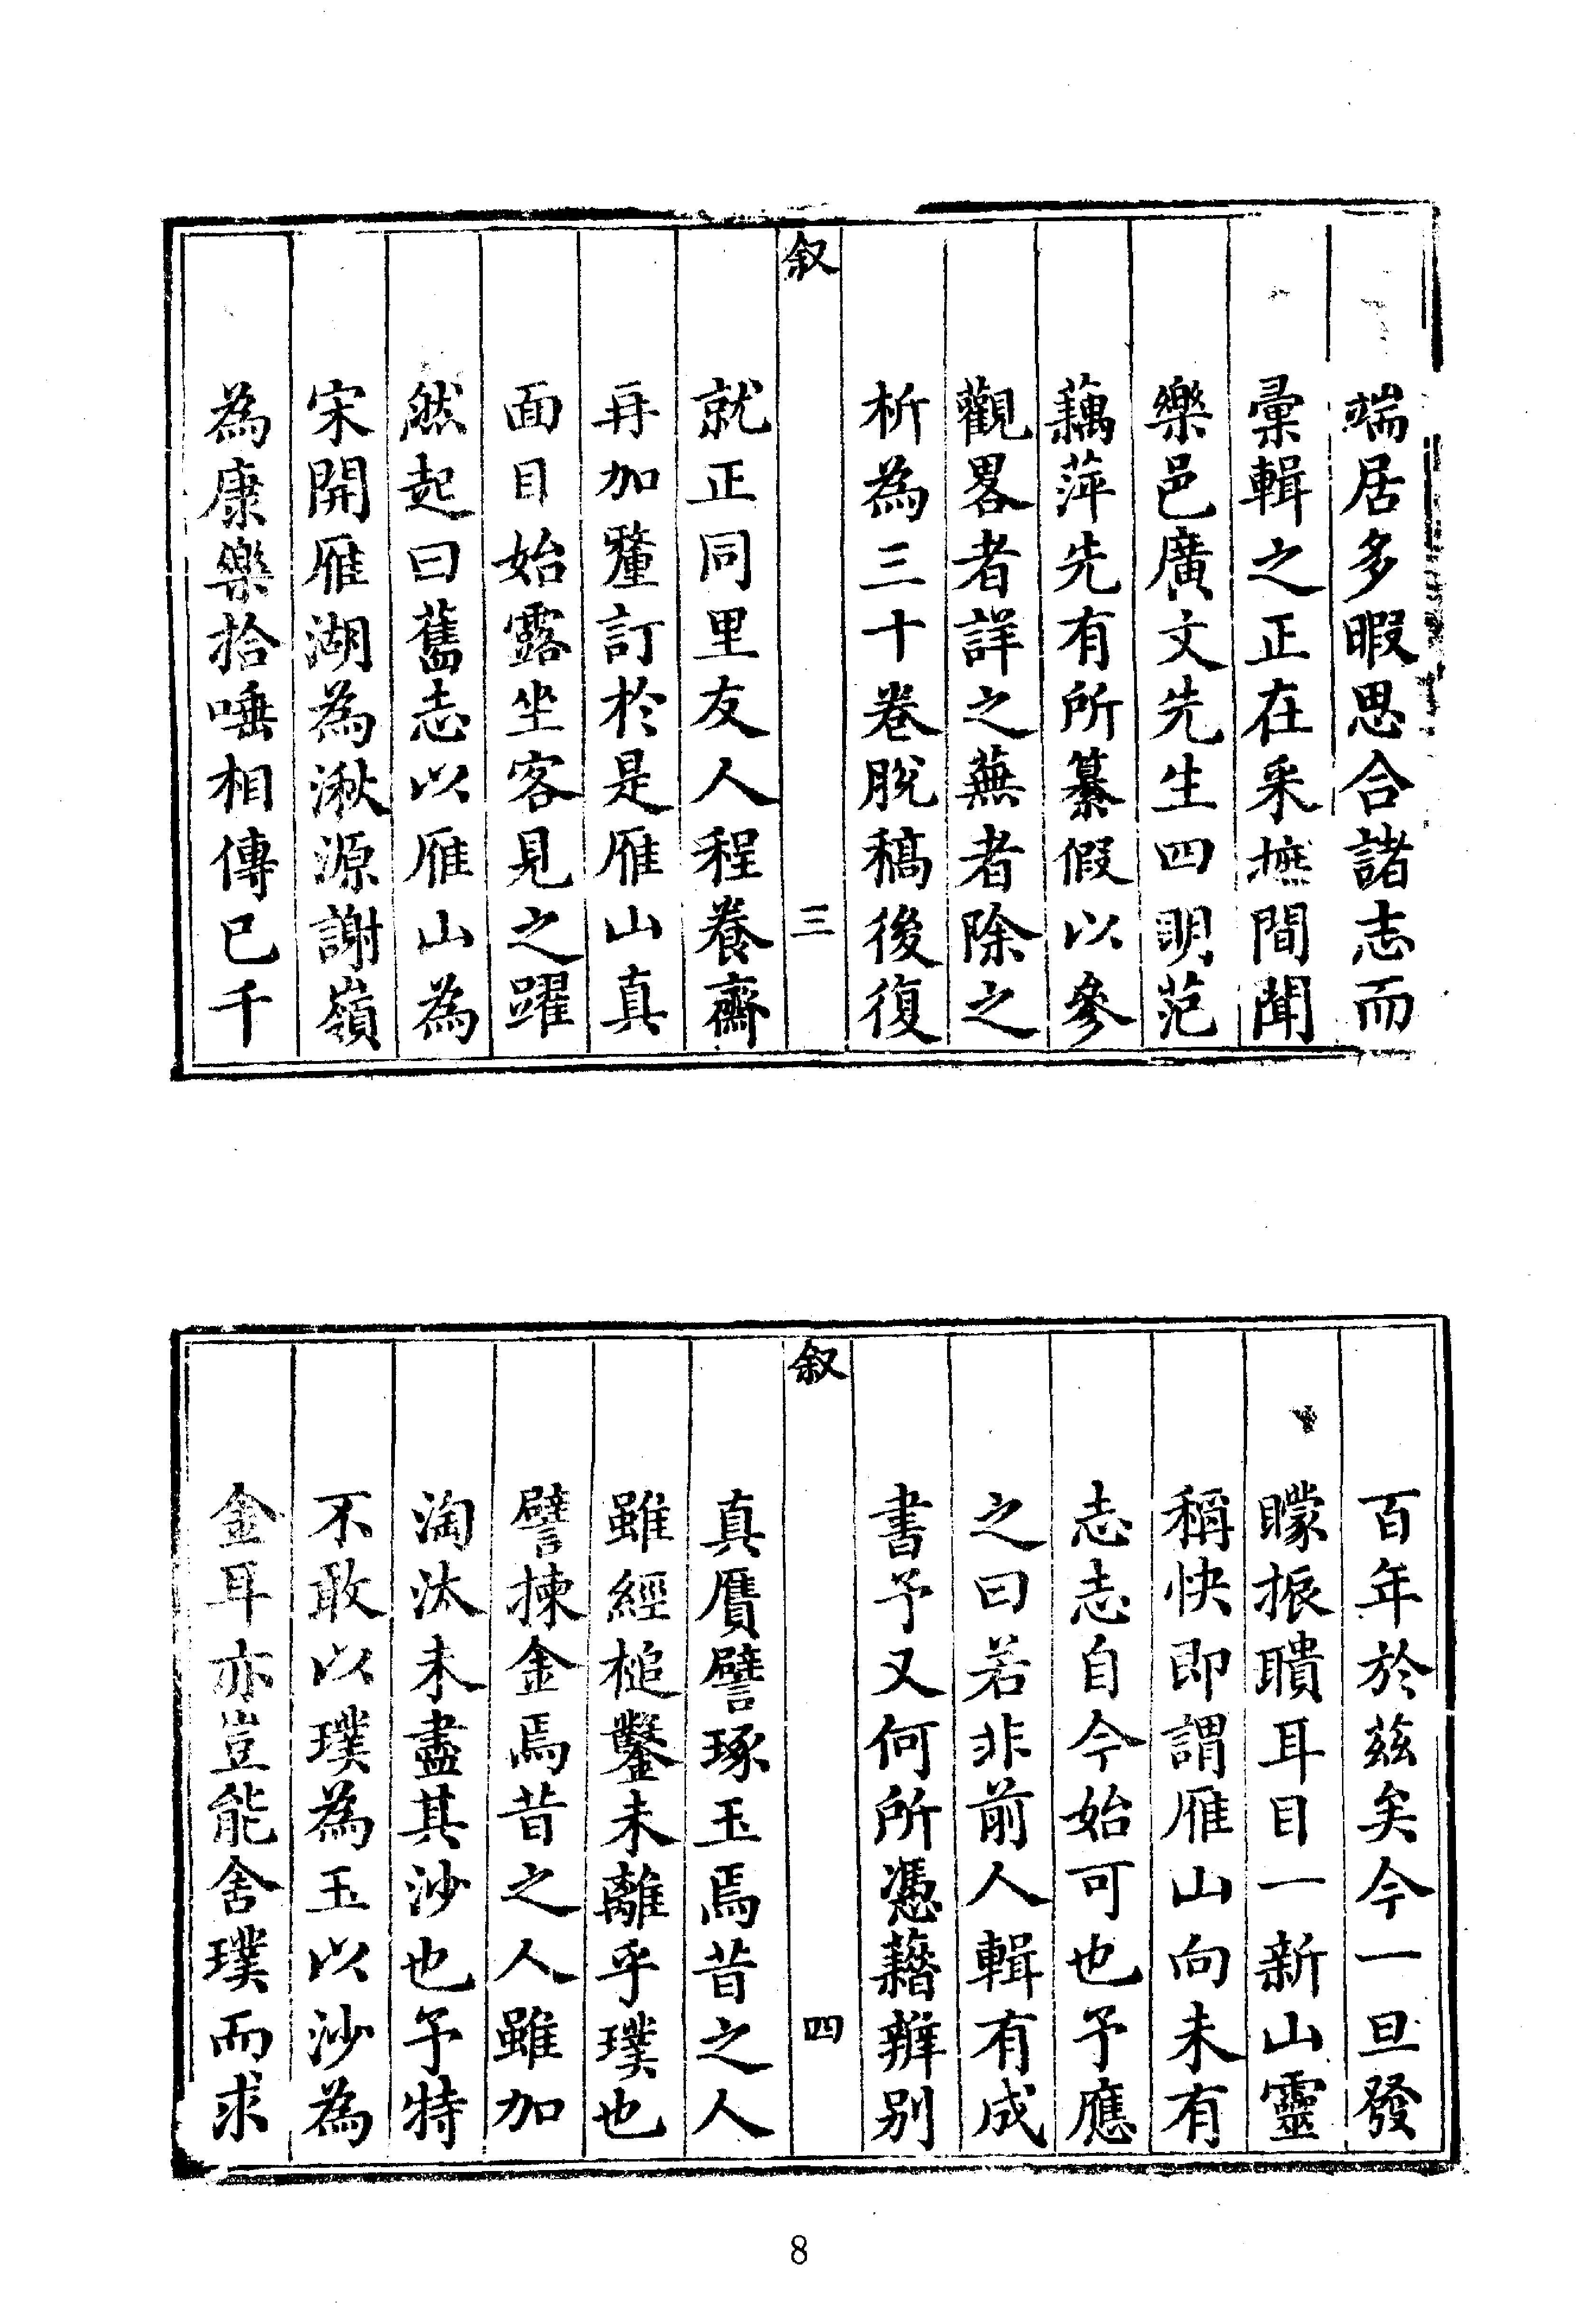 端居多暇思合諸志而
彚輯之正在采摭間聞
樂邑廣文先生四明范
藕萍先有所纂假以參
觀畧者詳之蕪者除之
析為三十卷脫稿後復
叙
三
就正同里友人程養齋
再加釐訂於是雁山真
面目始露坐客見之躍
然起曰舊志以雁山為
宋開雁湖為湫源謝嶺
為康樂拾唾相傳已千
百年於茲矣今一旦發
矇振聵耳目一新山靈
稱快即謂雁山向未有
志志自今始可也予應
之曰若非前人輯有成
書予又何所憑藉辨别
叙
四
真贋譬琢玉焉昔之人
雖經槌鑿未離乎璞也
譬揀金焉昔之人雖加
淘汰未盡其沙也予特
不敢以璞為玉以沙為
金耳亦豈能舍璞而求
8